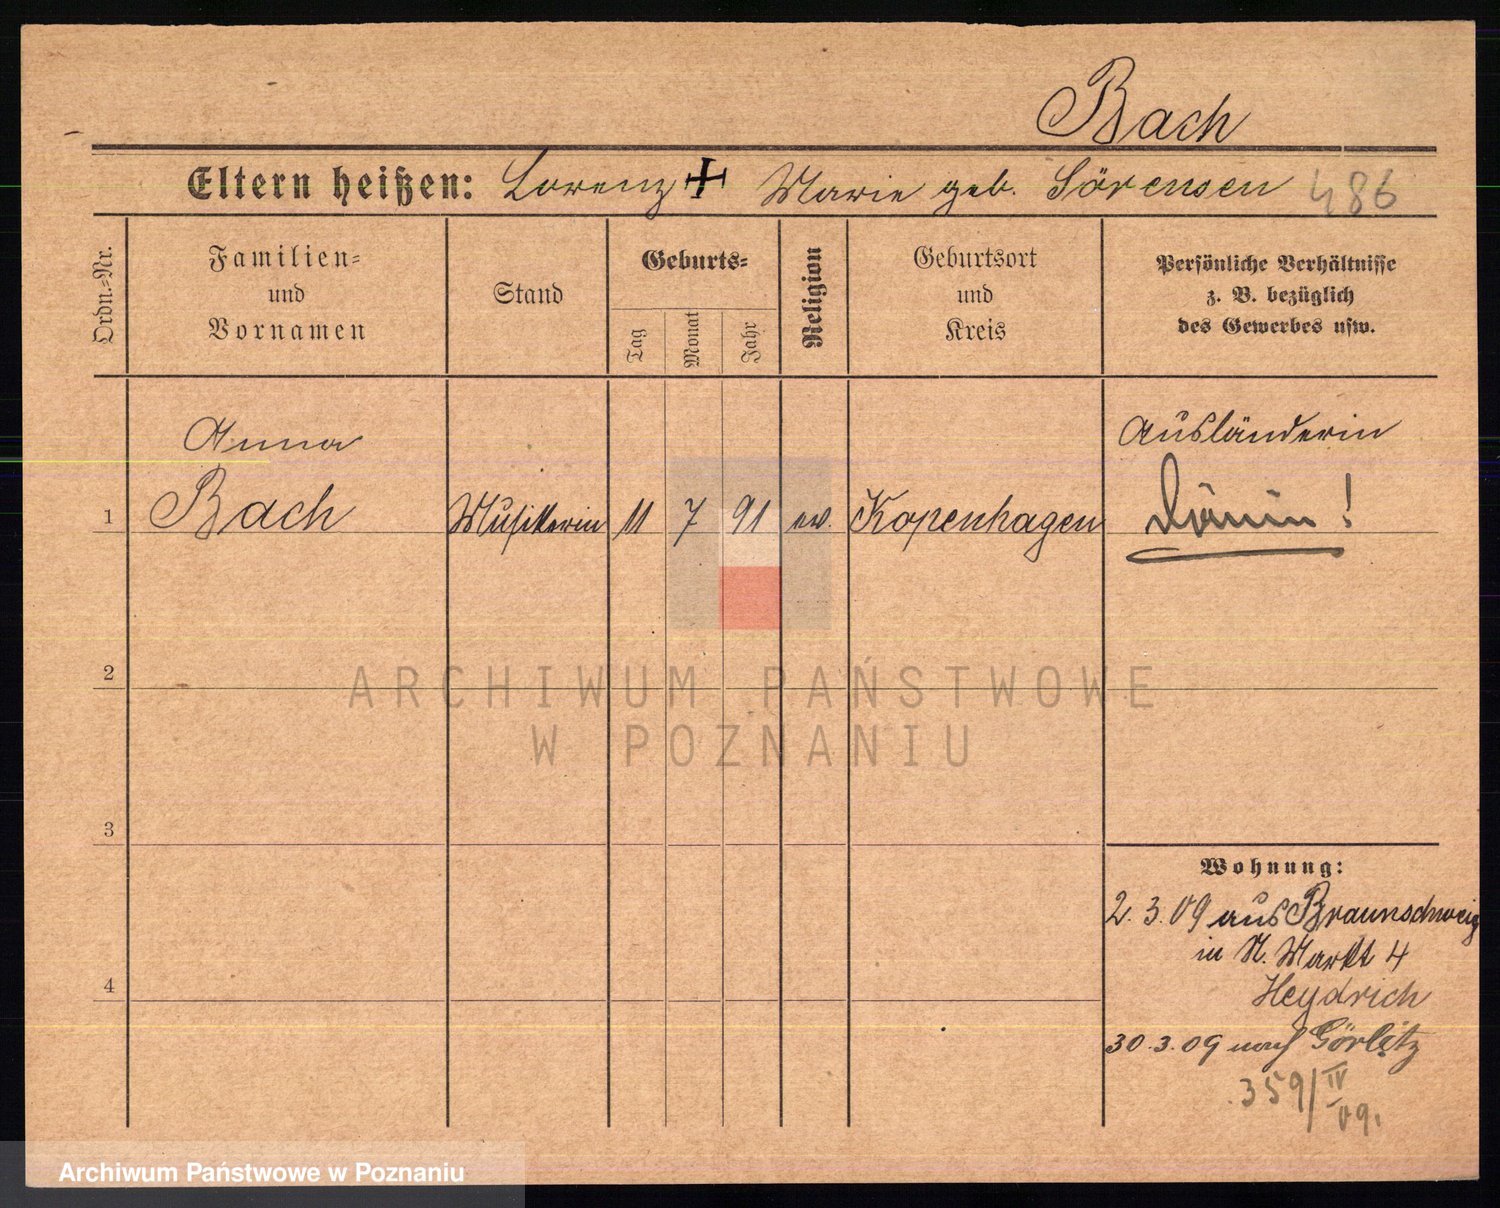 Bach
Eltern heißen: Lorenz + Marie geb. Sörensen 486
Ordn.-Nr.
Familien-
und
Vornamen
Stand
Geburts-
Tag
Monat
Jahr
Religion
Geburtsort
und
Kreis
Persönliche Verhältnisse
z. B. bezüglich
des Gewerbes usw.
Anna
Ausländerin
1 Bach Musikerin 11 7 91 ev. Kopenhagen Dänin!
2
ARCHIWUM PAŃSTWOWE
W POZNANIU
3
Wohnung:
2.3.09 aus Braunschweig
in N. Markt 4
4
Heydrich
30.3.09 nach Görlitz
359/IV
09.
Archiwum Państwowe w Poznaniu